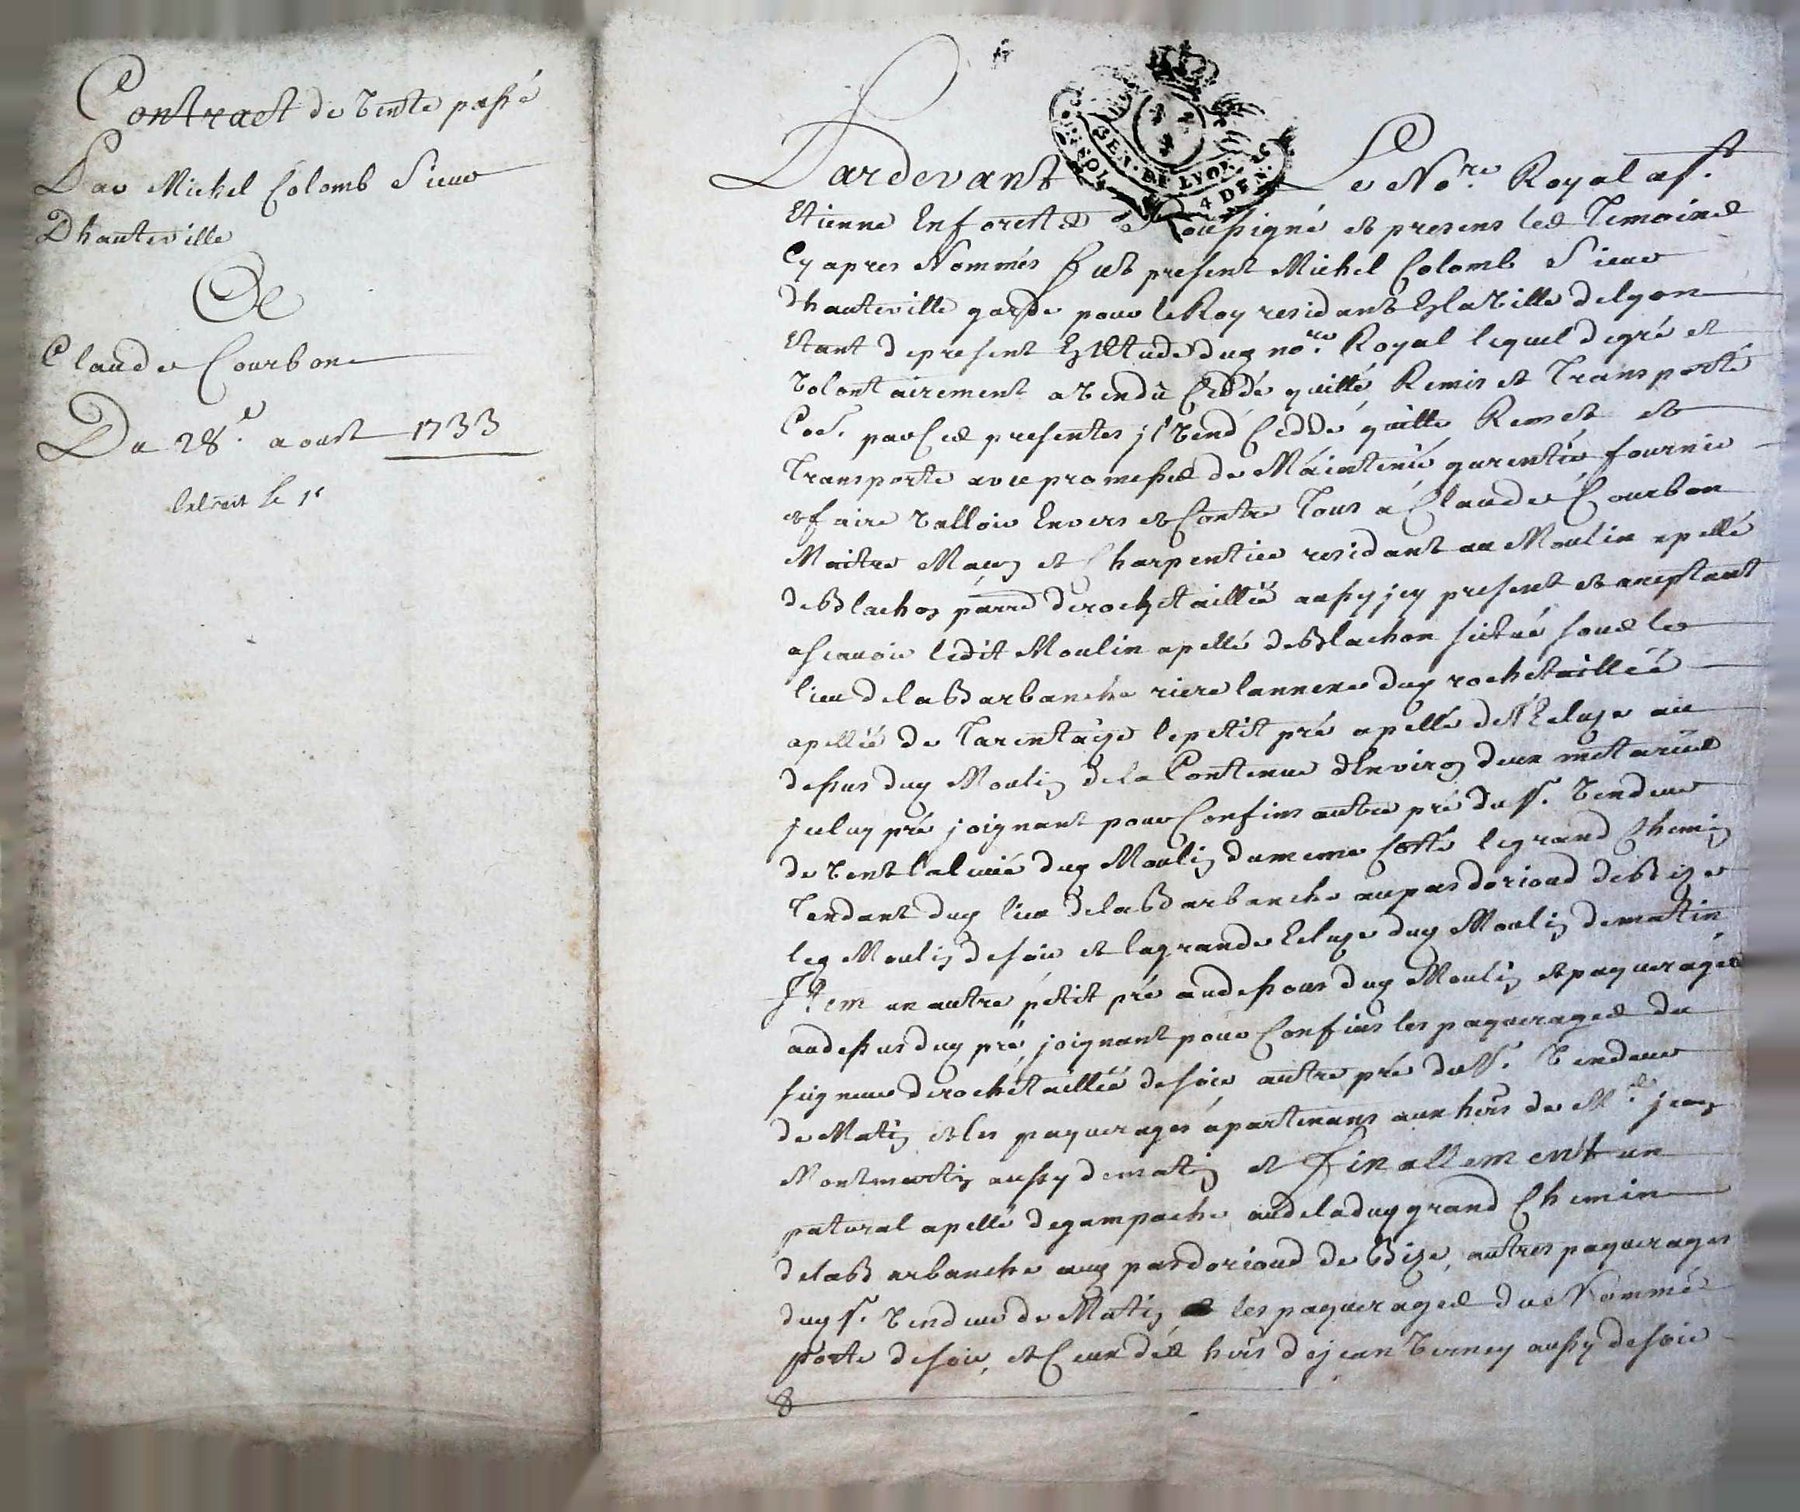 Contract de vente passé
Par Michel Colomb Sieur
Dhauteville
A
Claude Courbon
Du 28e. aoust 1733
GEN. DE LYON
4 DEN.
Pardevant Le No.re Royal a St.
Etienne En forest Soussigné et presens les temoins
Cy apres Nommés fut present Michel Colomb Sieur
dhauteville garde pour le Roy residant En la Ville de lyon
Etant de present En Etude dug no.re Royal lequel de gré et
Volontairement a Vendu Ceddé quitté, Remis et Transporté
Co.e. par Ces presentes il Vend Cedde quitte Remet et
Transporte avec promesse de Maintenir garentir fournir
et faire Valloir Envers et Contre Tous a Claude Courbon
Maitre Maçon et Charpentier residant au Moulin apellé
de Blachon parre de rochetaillié aussy icy present et aceptant
ascavoir ledit Moulin apellé de Blachon situé sous le
lieu de la Barbanche riere lannexe dug rochetaillié
apellé de Tarentaise le petit pré apellé de l'Ecluze au
dessus dug Moulin de la Contenue d'Environ deux métariées
jceluy pré joignant pour Confins autre pré du Sr. Vendeur
de Vent dug Moulin du meme Cotté le grand Chemin
Tendant dug lieu de la Barbanche au pas de riaud de Bize
leg Moulin de soir et la grande Ecluze dug Moulin de matin
Item un autre petit pré au dessous dug Moulin et paquerages
au dessus dug pré, joignant pour Confins les paquerages du
seigneur de rochetaillié de soir, autre pré du Sr. Vendeur
de Matin et les paquerages apartenans aux hoirs de Me. jean
Montmartin aussy de matin et finallement un
patural apellé de gampache au dela dug grand Chemin
de la Barbanche aug pas de riaud de Bize, autres paquerages
dug Sr. Vendeur de Matin les paquerages du Nommé
porte de soir, et Ceux des hoirs de jean Verney aussy de soir